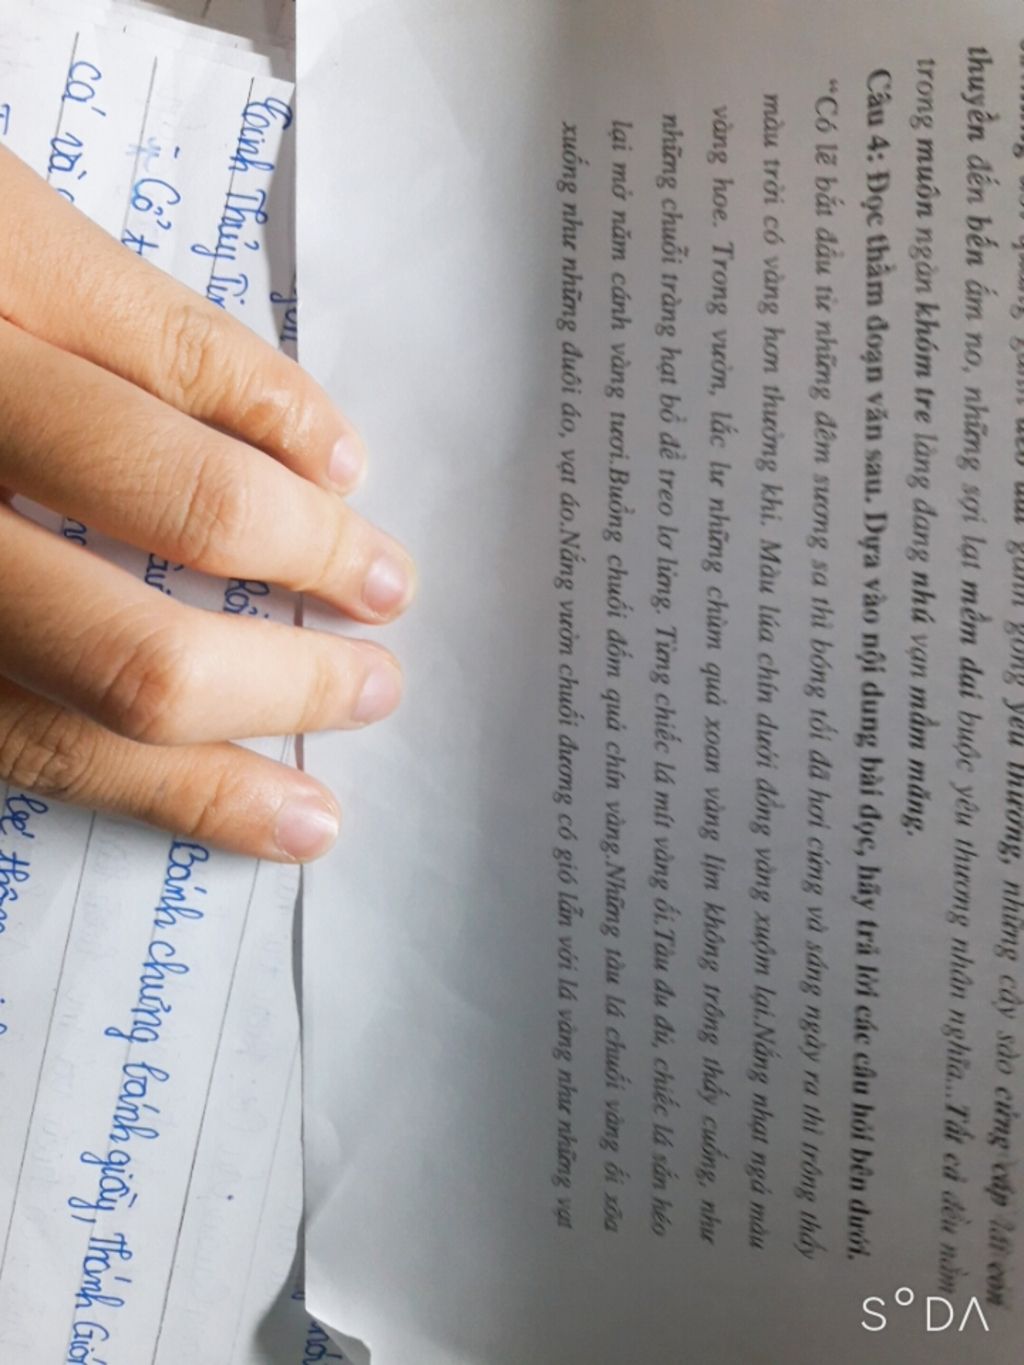 thuyền đến bến ấm no, những sợi lạt mềm dai buộc yêu thương nhân nghĩa...Tất cả đều nằm
trong muôn ngàn khóm tre làng đang nhú vạn mầm măng.
Câu 4: Đọc thầm đoạn văn sau. Dựa vào nội dung bài đọc, hãy trả lời các câu hỏi bên dưới.
“Có lẽ bắt đầu từ những đêm sương sa thì bóng tối đã hơi cứng và sáng ngày ra thì trông thấy
màu trời có vàng hơn thường khi. Màu lúa chín dưới đồng vàng xuộm lại.Nắng nhạt ngả màu
vàng hoe. Trong vườn, lắc lư những chùm quả xoan vàng lịm không trông thấy cuống, như
những chuỗi tràng hạt bồ đề treo lơ lửng. Từng chiếc lá mít vàng ối.Tàu đu đủ, chiếc lá sắn héo
lại mở năm cánh vàng tươi.Buồng chuối đốm quả chín vàng.Những tàu lá chuối vàng ối xõa
xuống như những đuôi áo, vạt áo.Nắng vườn chuối đương có gió lẫn với lá vàng như những vạt
Tinh Thủy Tin
Cổ t
cá và
Bánh chưng bánh giầy, Thánh Gión
SODA